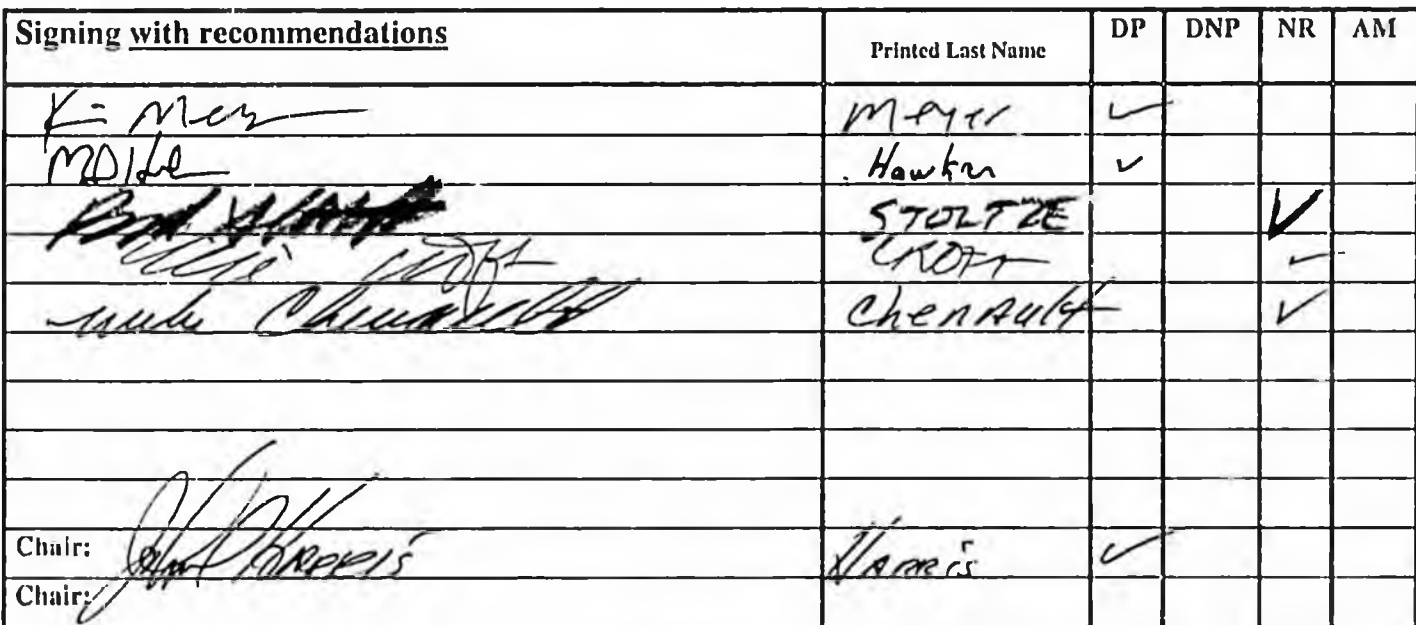 Signing with recommendations Printed Last Name DP DNP NR AM
Meyer ✓
Hawker ✓
STOLTZE ✓
CROFT ✓
Mike Chenault Chenault ✓
Chair: Harris Harris ✓
Chair: